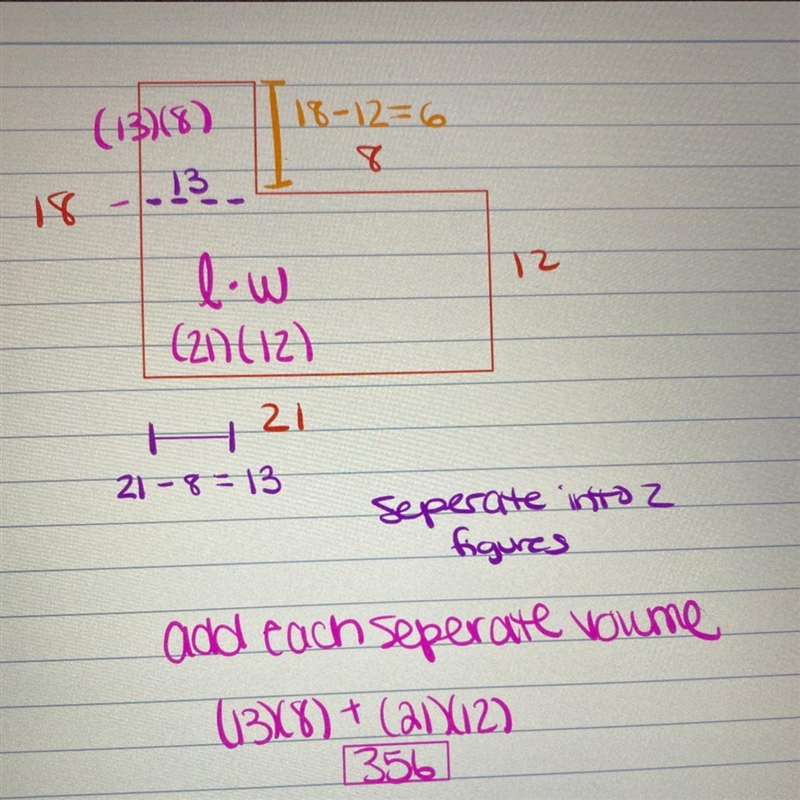 (13)(8)
18-12=6
8
13
18
12
l·w
(21)(12)
21
21-8=13
seperate into 2
figures
add each seperate voume
(13)(8) + (21)(12)
356